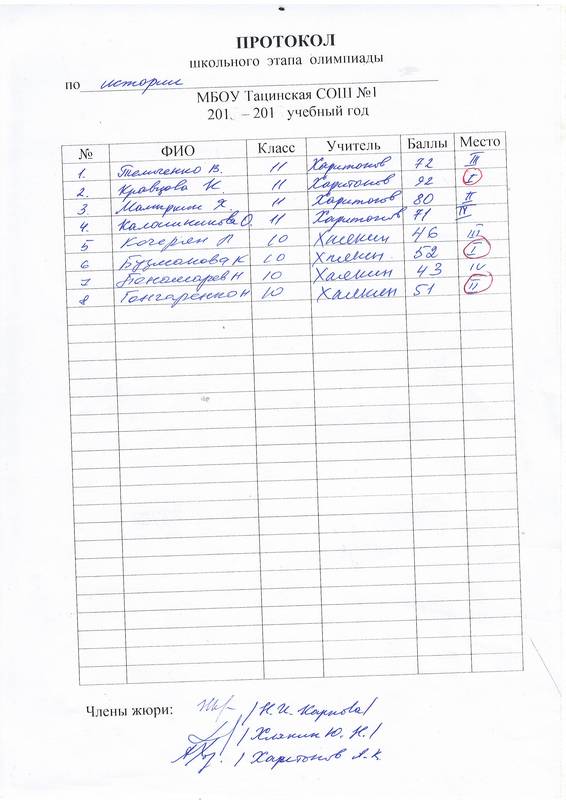 ПРОТОКОЛ
школьного этапа олимпиады
по истории
МБОУ Тацинская СОШ №1
201 – 201 учебный год
№ ФИО Класс Учитель Баллы Место
1. В. 11 Харитонов 72 III
2. Кравцова Н. 11 Харитонов 92 I
3. 11 Харитонов 80 II
4. Калашникова О. 11 Харитонов 71 IV
5 Кочерян Л 10 Хлякин 46 III
6 Бузманова К 10 Хлякин 52 I
7 Пономарев Н 10 Хлякин 43 IV
8 Гончаренко Н 10 Хлякин 51 II
Члены жюри: / Н.И. Карпова /
/ Хлякин Ю. Н. /
/ Харитонов А.К